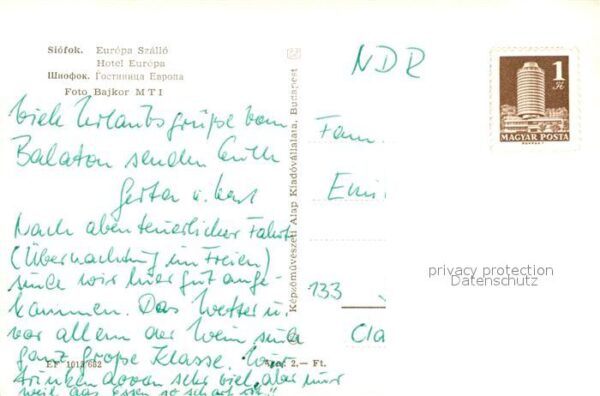 Siófok. Európa Szálló
Hotel Európa
Шиофок. Гостиница Европа
Foto Bajkor MTI
Viele Urlaubsgrüße vom
Balaton senden Euch
Gerta u. Karl
Nach abenteuerlicher Fahrt
(Übernachtung im Freien)
sind wir hier gut ange-
kommen. Das Wetter u.
vor allem der Wein sind
ganz große Klasse. Wir
trinken davon sehr viel, aber nur
weil das Essen so scharf ist!!
EF 1013/682
Ára: 2,— Ft.
Képzőművészeti Alap Kiadóvállalata, Budapest
NDR
1 Ft
MAGYAR POSTA
Fam.
Emi
133
Cla
privacy protection
Datenschutz